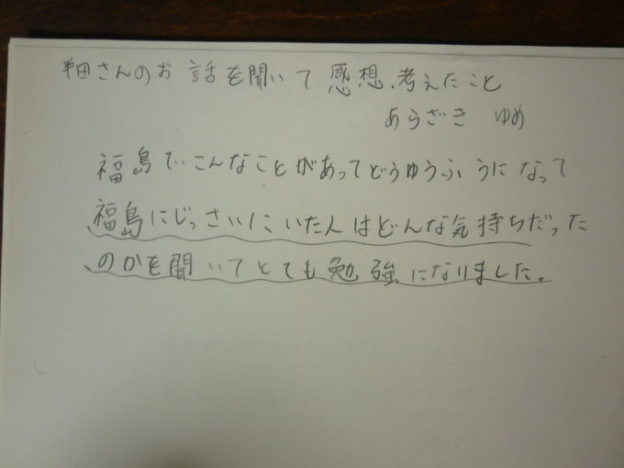 半田さんのお話を聞いて感想、考えたこと
あらざき ゆめ
福島で、こんなことがあってどうゆうふうになって
福島にじっさいにいた人はどんな気持ちだった
のかを聞いてとても勉強になりました。